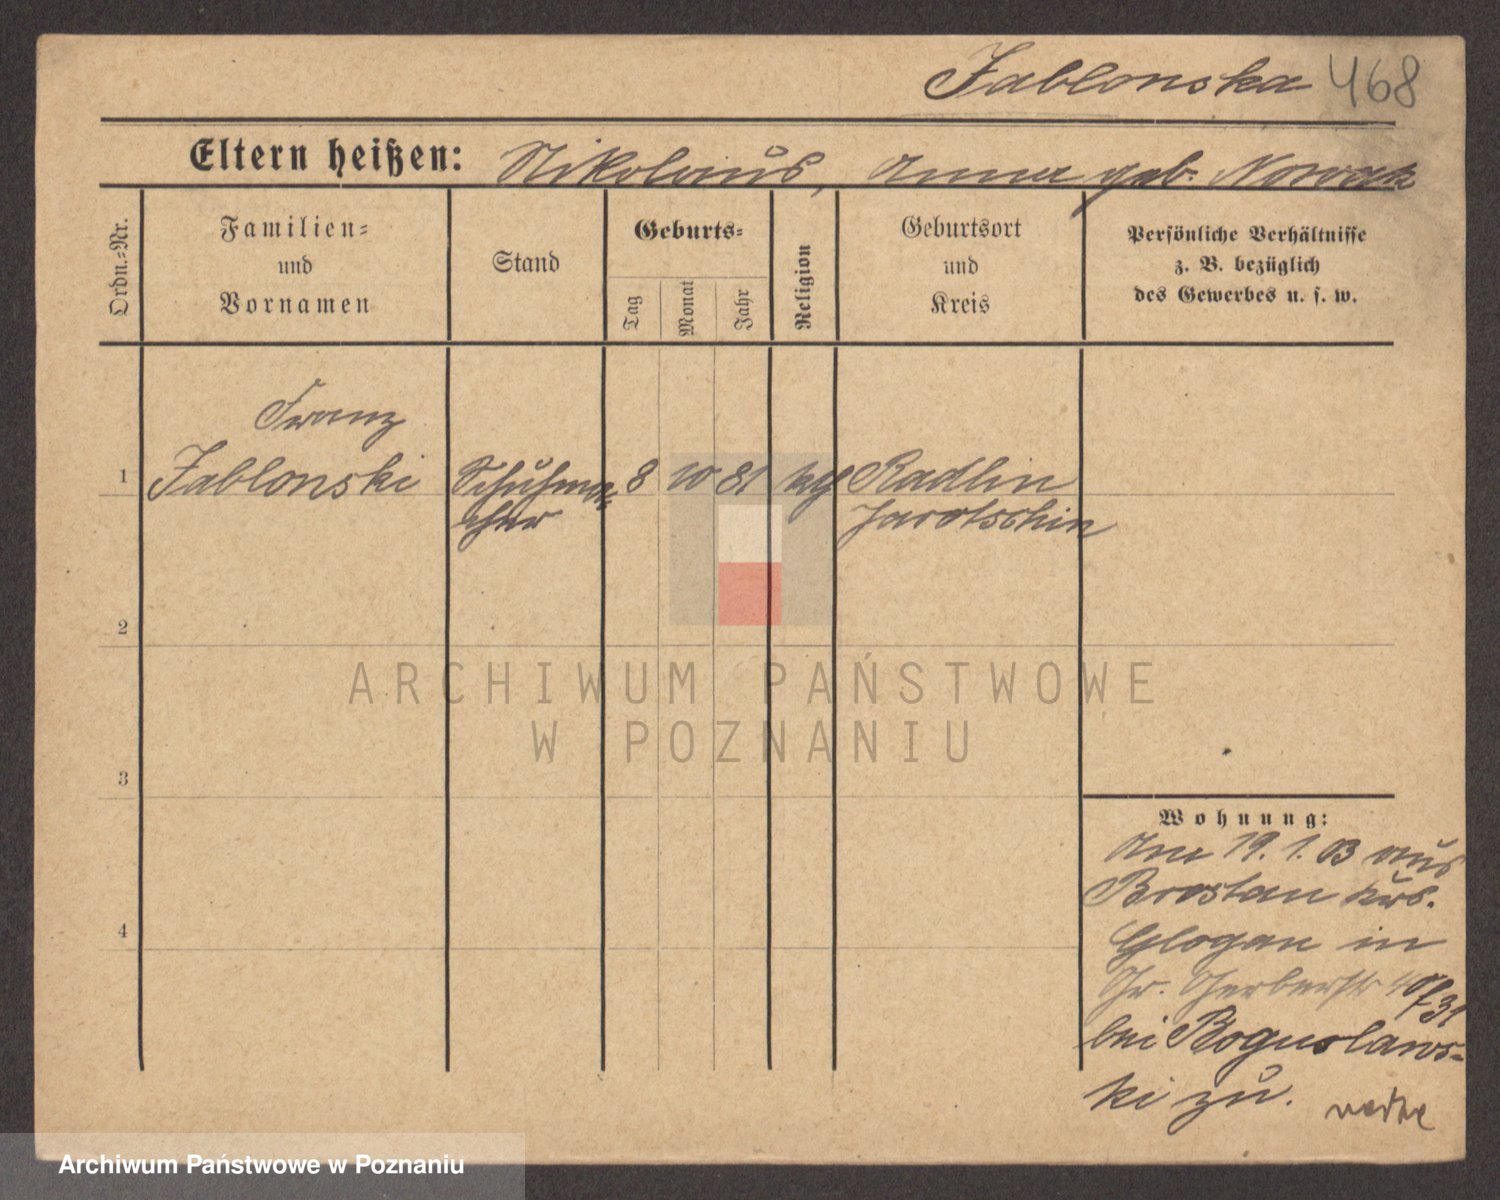 Jablonska 468
Eltern heißen: Nikolaus, Anna geb. Nowak
Ordn.-Nr.
Familien-
und
Vornamen
Stand
Geburts-
Tag
Monat
Jahr
Religion
Geburtsort
und
Kreis
Persönliche Verhältnisse
z. B. bezüglich
des Gewerbes u. s. w.
Franz
1 Jablonski Schuhma- 8 10 81 kg Radlin
cher Jarotschin
2
3
4
Wohnung:
Am 19. 1. 03 aus
Brostau Krs.
Glogau in
Gr. Gerberstr 40/31
bei Boguslaws-
ki zu.
ARCHIWUM PAŃSTWOWE
W POZNANIU
Archiwum Państwowe w Poznaniu